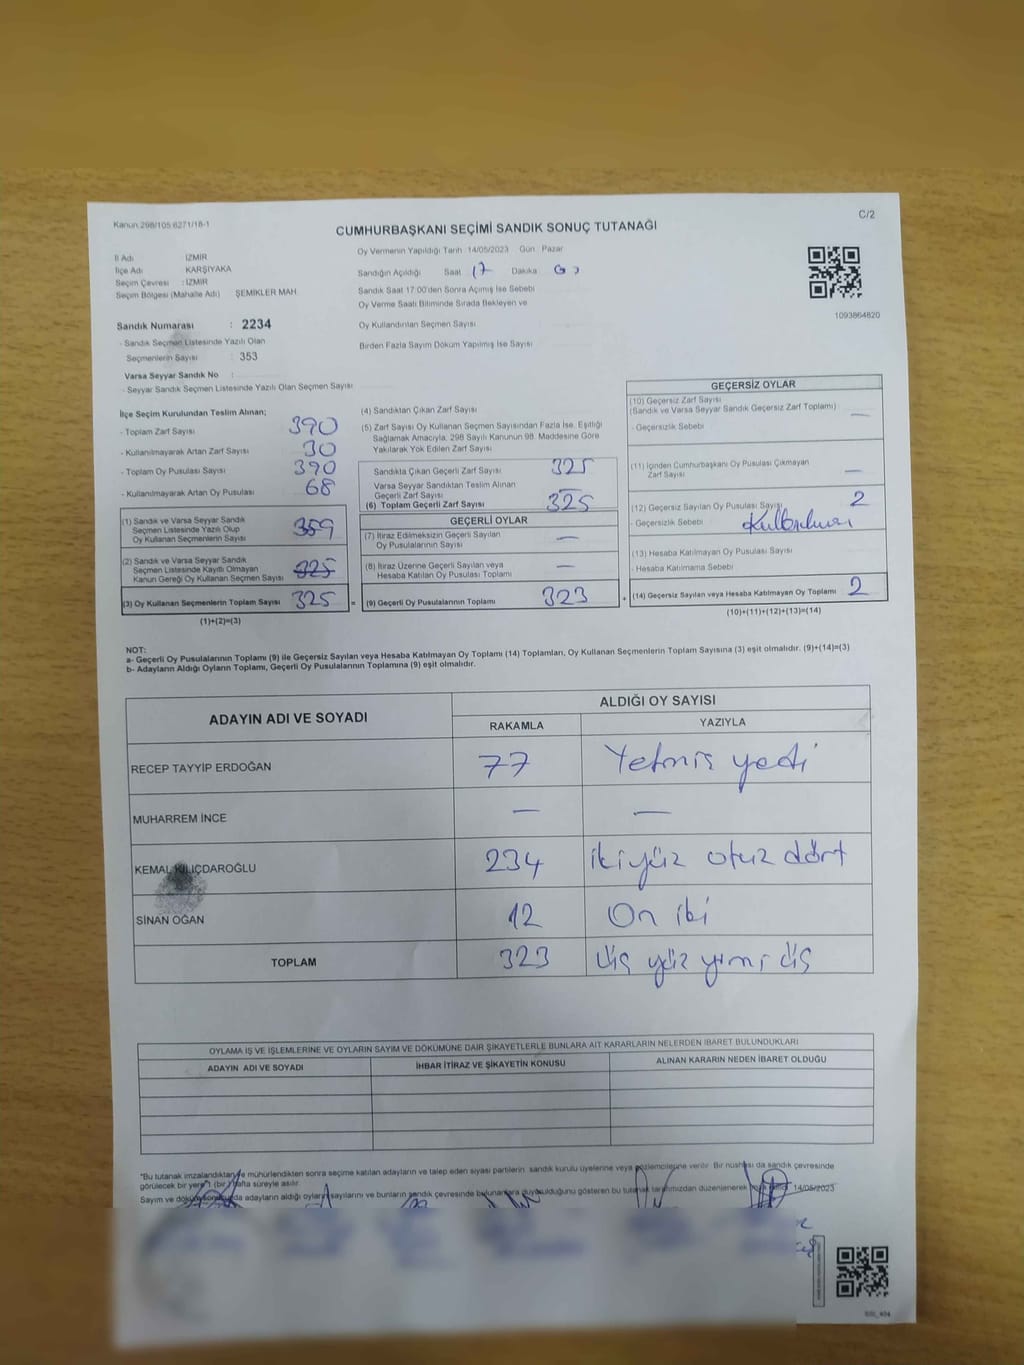 Kanun 298/105 6271/18-1
C/2
CUMHURBAŞKANI SEÇİMİ SANDIK SONUÇ TUTANAĞI
Oy Vermenin Yapıldığı Tarih 14/05/2023 Gün Pazar
İl Adı İZMİR
İlçe Adı KARŞIYAKA
Seçim Çevresi : İZMİR
Seçim Bölgesi (Mahalle Adı) ŞEMİKLER MAH.
Sandığın Açıldığı Saat 17 Dakika
Sandık Saat 17:00'den Sonra Açılmış İse Sebebi
Oy Verme Saati Bitiminde Sırada Bekleyen ve
Oy Kullandırılan Seçmen Sayısı
Birden Fazla Sayım Döküm Yapılmış İse Sayısı
1093864820
Sandık Numarası : 2234
- Sandık Seçmen Listesinde Yazılı Olan
Seçmenlerin Sayısı : 353
Varsa Seyyar Sandık No :
- Seyyar Sandık Seçmen Listesinde Yazılı Olan Seçmen Sayısı
İlçe Seçim Kurulundan Teslim Alınan;
- Toplam Zarf Sayısı 390
- Kullanılmayarak Artan Zarf Sayısı 30
- Toplam Oy Pusulası Sayısı 390
- Kullanılmayarak Artan Oy Pusulası 68
(1) Sandık ve Varsa Seyyar Sandık
Seçmen Listesinde Yazılı Olup
Oy Kullanan Seçmenlerin Sayısı 359
(2) Sandık ve Varsa Seyyar Sandık
Seçmen Listesinde Kayıtlı Olmayan
Kanun Gereği Oy Kullanan Seçmen Sayısı 325
(3) Oy Kullanan Seçmenlerin Toplam Sayısı 325 =
(1)+(2)=(3)
(4) Sandıktan Çıkan Zarf Sayısı
(5) Zarf Sayısı Oy Kullanan Seçmen Sayısından Fazla İse, Eşitliği
Sağlamak Amacıyla, 298 Sayılı Kanunun 98. Maddesine Göre
Yakılarak Yok Edilen Zarf Sayısı
Sandıkta Çıkan Geçerli Zarf Sayısı 325
Varsa Seyyar Sandıktan Teslim Alınan
Geçerli Zarf Sayısı
(6) Toplam Geçerli Zarf Sayısı 325
GEÇERLİ OYLAR
(7) İtiraz Edilmeksizin Geçerli Sayılan
Oy Pusulalarının Sayısı —
(8) İtiraz Üzerine Geçerli Sayılan veya
Hesaba Katılan Oy Pusulası Toplamı —
(9) Geçerli Oy Pusulalarının Toplamı 323 +
GEÇERSİZ OYLAR
(10) Geçersiz Zarf Sayısı
(Sandık ve Varsa Seyyar Sandık Geçersiz Zarf Toplamı) —
- Geçersizlik Sebebi
(11) İçinden Cumhurbaşkanı Oy Pusulası Çıkmayan
Zarf Sayısı —
(12) Geçersiz Sayılan Oy Pusulası Sayısı 2
- Geçersizlik Sebebi
(13) Hesaba Katılmayan Oy Pusulası Sayısı
- Hesaba Katılmama Sebebi
(14) Geçersiz Sayılan veya Hesaba Katılmayan Oy Toplamı 2
(10)+(11)+(12)+(13)=(14)
NOT:
a- Geçerli Oy Pusulalarının Toplamı (9) ile Geçersiz Sayılan veya Hesaba Katılmayan Oy Toplamı (14) Toplamları, Oy Kullanan Seçmenlerin Toplam Sayısına (3) eşit olmalıdır. (9)+(14)=(3)
b- Adayların Aldığı Oyların Toplamı, Geçerli Oy Pusulalarının Toplamına (9) eşit olmalıdır.
ADAYIN ADI VE SOYADI
ALDIĞI OY SAYISI
RAKAMLA YAZIYLA
RECEP TAYYİP ERDOĞAN 77 Yetmiş yedi
MUHARREM İNCE — —
KEMAL KILIÇDAROĞLU 234 ikiyüz otuz dört
SİNAN OĞAN 12 On iki
TOPLAM 323 üç yüz yirmi üç
OYLAMA İŞ VE İŞLEMLERİNE VE OYLARIN SAYIM VE DÖKÜMÜNE DAİR ŞİKAYETLERLE BUNLARA AİT KARARLARIN NELERDEN İBARET BULUNDUKLARI
ADAYIN ADI VE SOYADI İHBAR İTİRAZ VE ŞİKAYETİN KONUSU ALINAN KARARIN NEDEN İBARET OLDUĞU
*Bu tutanak imzalandıktan ve mühürlendikten sonra seçime katılan adayların ve talep eden siyasi partilerin sandık kurulu üyelerine veya gözlemcilerine verilir. Bir nüshası da sandık çevresinde
görülecek bir yere 1 (bir) hafta süreyle asılır.
Sayım ve döküm sonucunda adayların aldığı oyların sayılarını ve bunların sandık çevresinde bulunanlara duyurulduğunu gösteren bu tutanak tarafımızdan düzenlenerek 14/05/2023